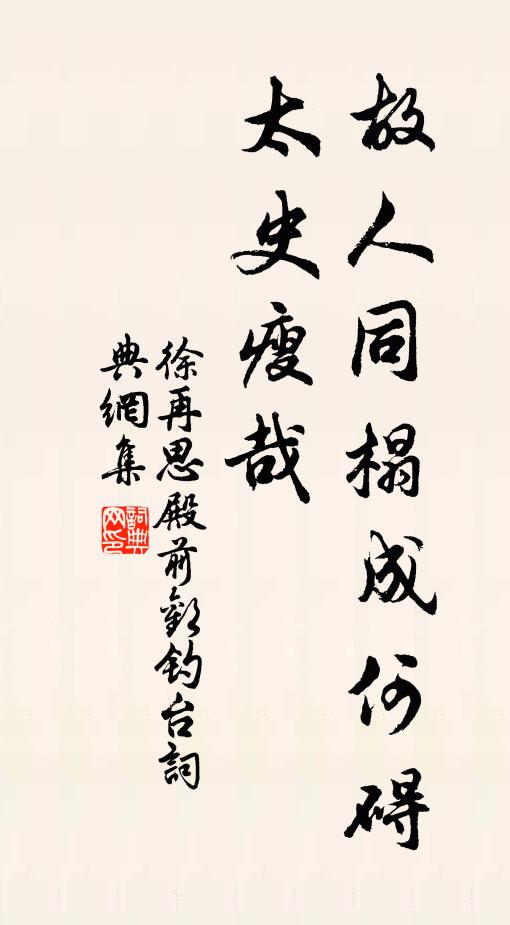 故人同榻成何碍
太史瘦哉
徐再思殿前歡钓台詞
典網集
詞典网印